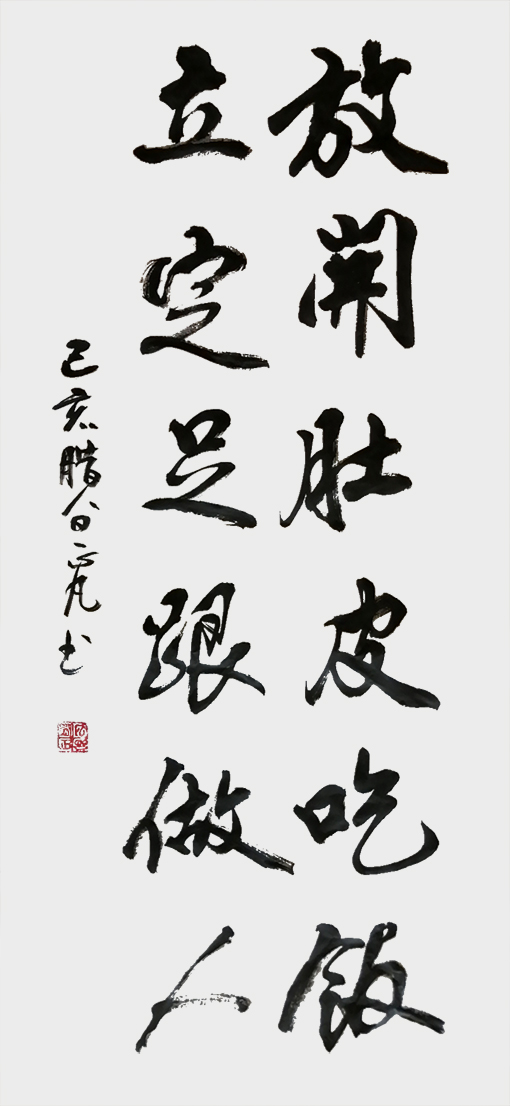 放開肚皮吃飯
立定足跟做人
己亥腊八日之凡书